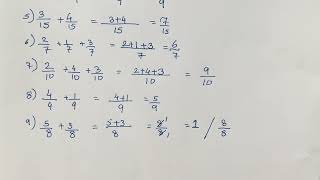 9
5) 3/15 + 4/15 = 3+4/15 = 7/15
6) 2/7 + 1/7 + 3/7 = 2+1+3/7 = 6/7
7) 2/10 + 4/10 + 3/10 = 2+4+3/10 = 9/10
8) 4/9 + 1/9 = 4+1/9 = 5/9
9) 5/8 + 3/8 = 5+3/8 = 8 1/8 1 = 1 / 8/8